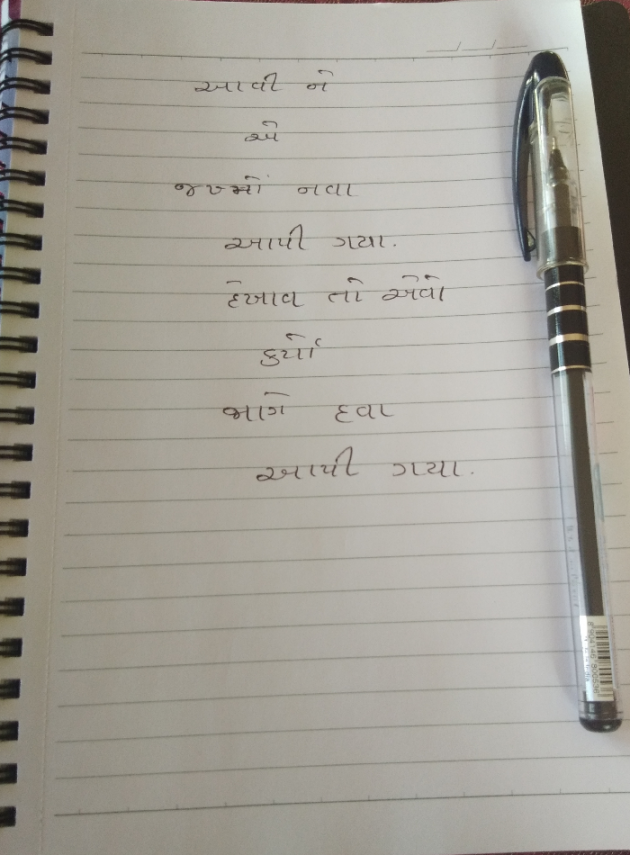 આવી ને
એ
જખ્મો નવા
આપી ગયા.
દેખાવ તો એવો
કર્યો
જાણે દવા
આપી ગયા.